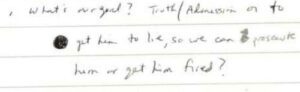 , What is our goal? Truth/Admission or to
get him to lie, so we can prosecute
him or get him fired?